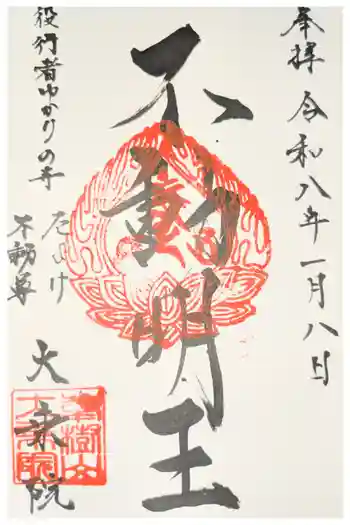 奉拝 令和八年一月八日
不動明王
役行者ゆかりの寺
厄よけ
不動尊
大乗院